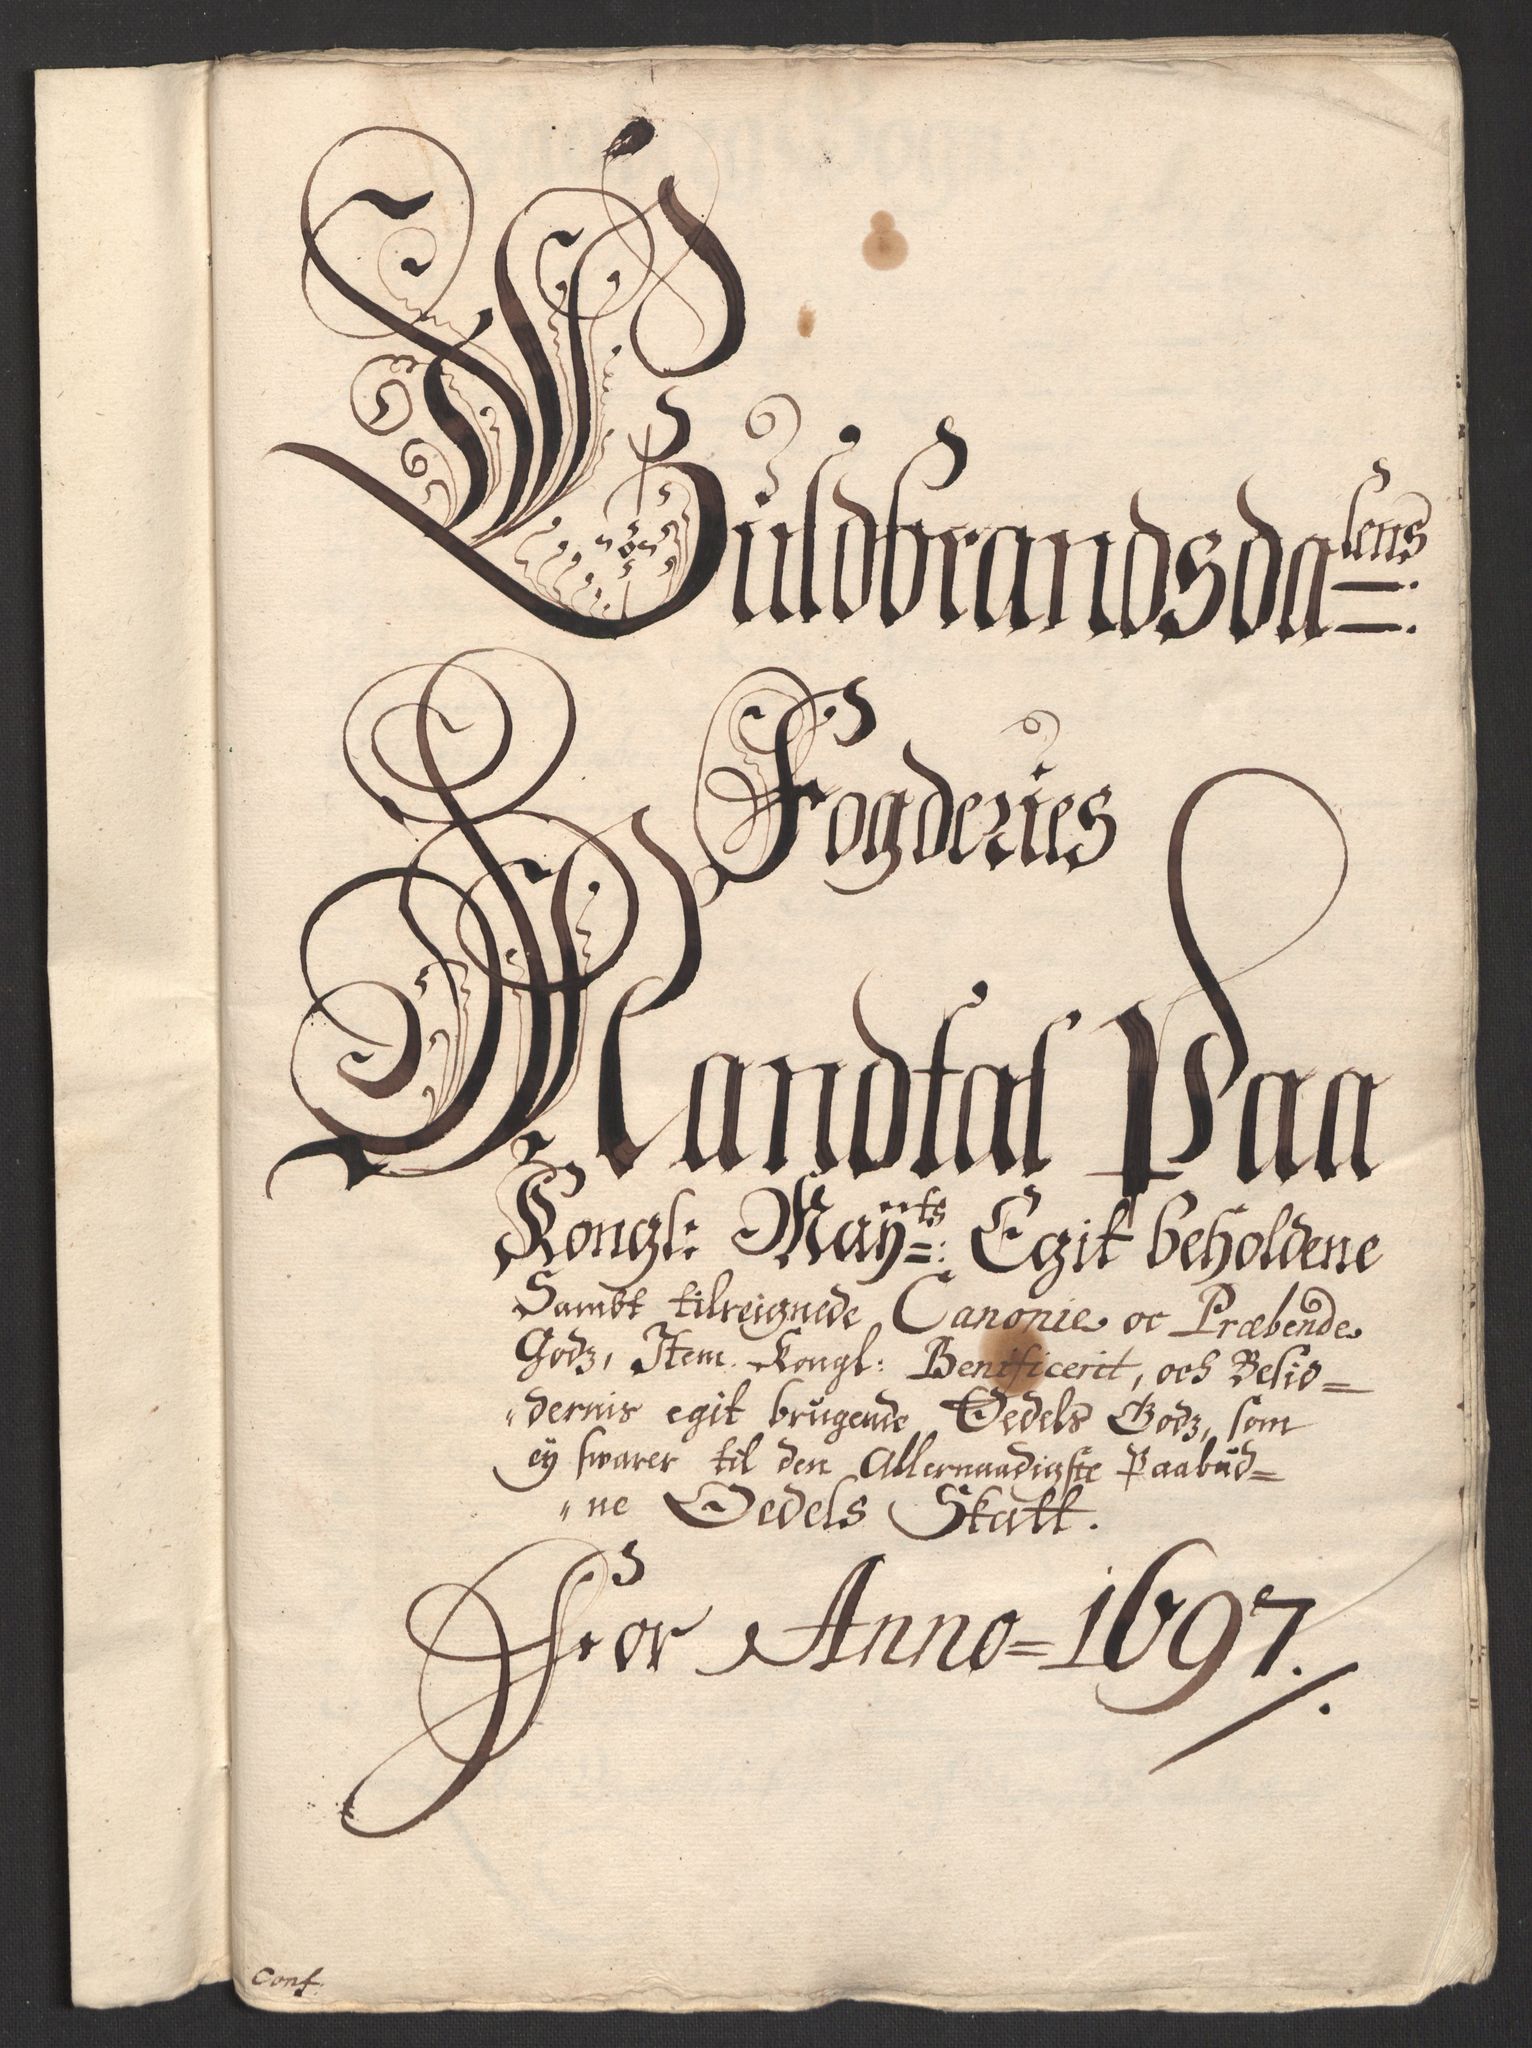 Guldbrandsdalens
Fogderies
Mandtal Paa
Kongl: Maÿ=ts: Egit beholdene
Sambt tilreignede Canonie oc Præbende
Godz, Item Kongl: Benificerit, och Besid=
"dernis egit brugende Oedels Godz, som
eÿ swarer til den Allernaadigste Paabud=
"ne Oedels Skatt.
For Anno=1697.
Conf.